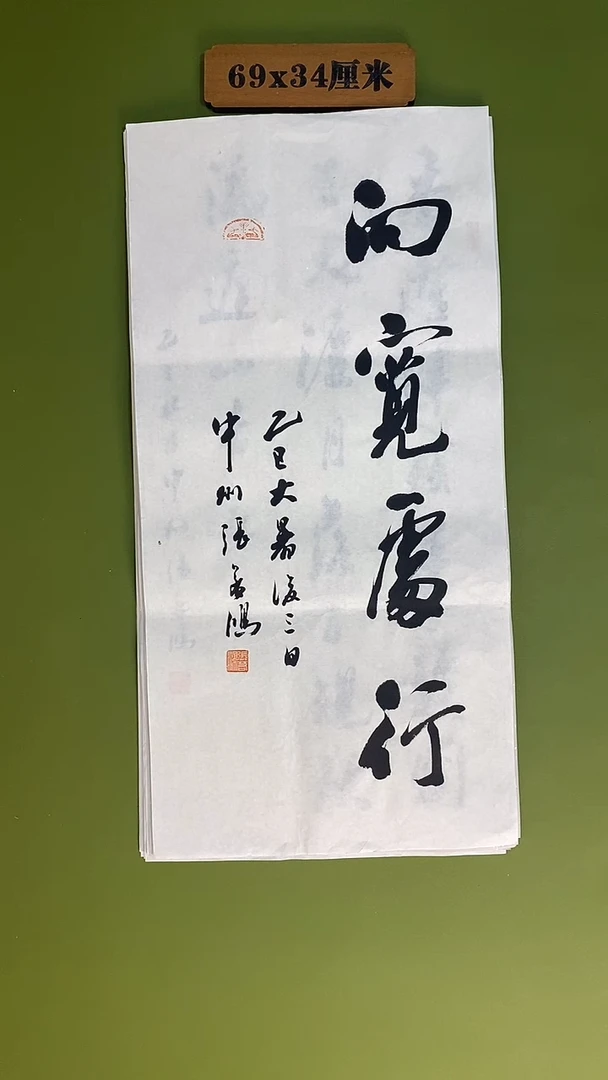 69x34厘米
向寬處行
乙巳大暑後三日
中州張善鴻